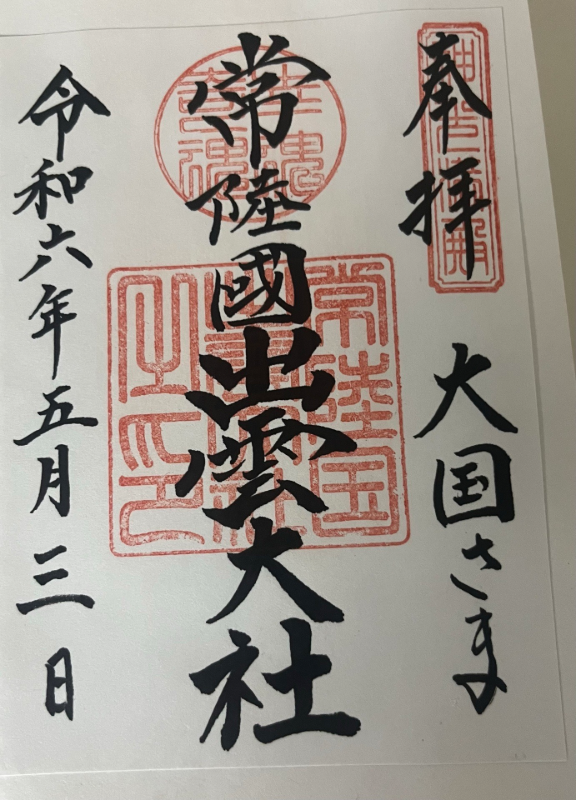 奉拝
大国さま
常陸國出雲大社
令和六年五月三日
常陸国
之印